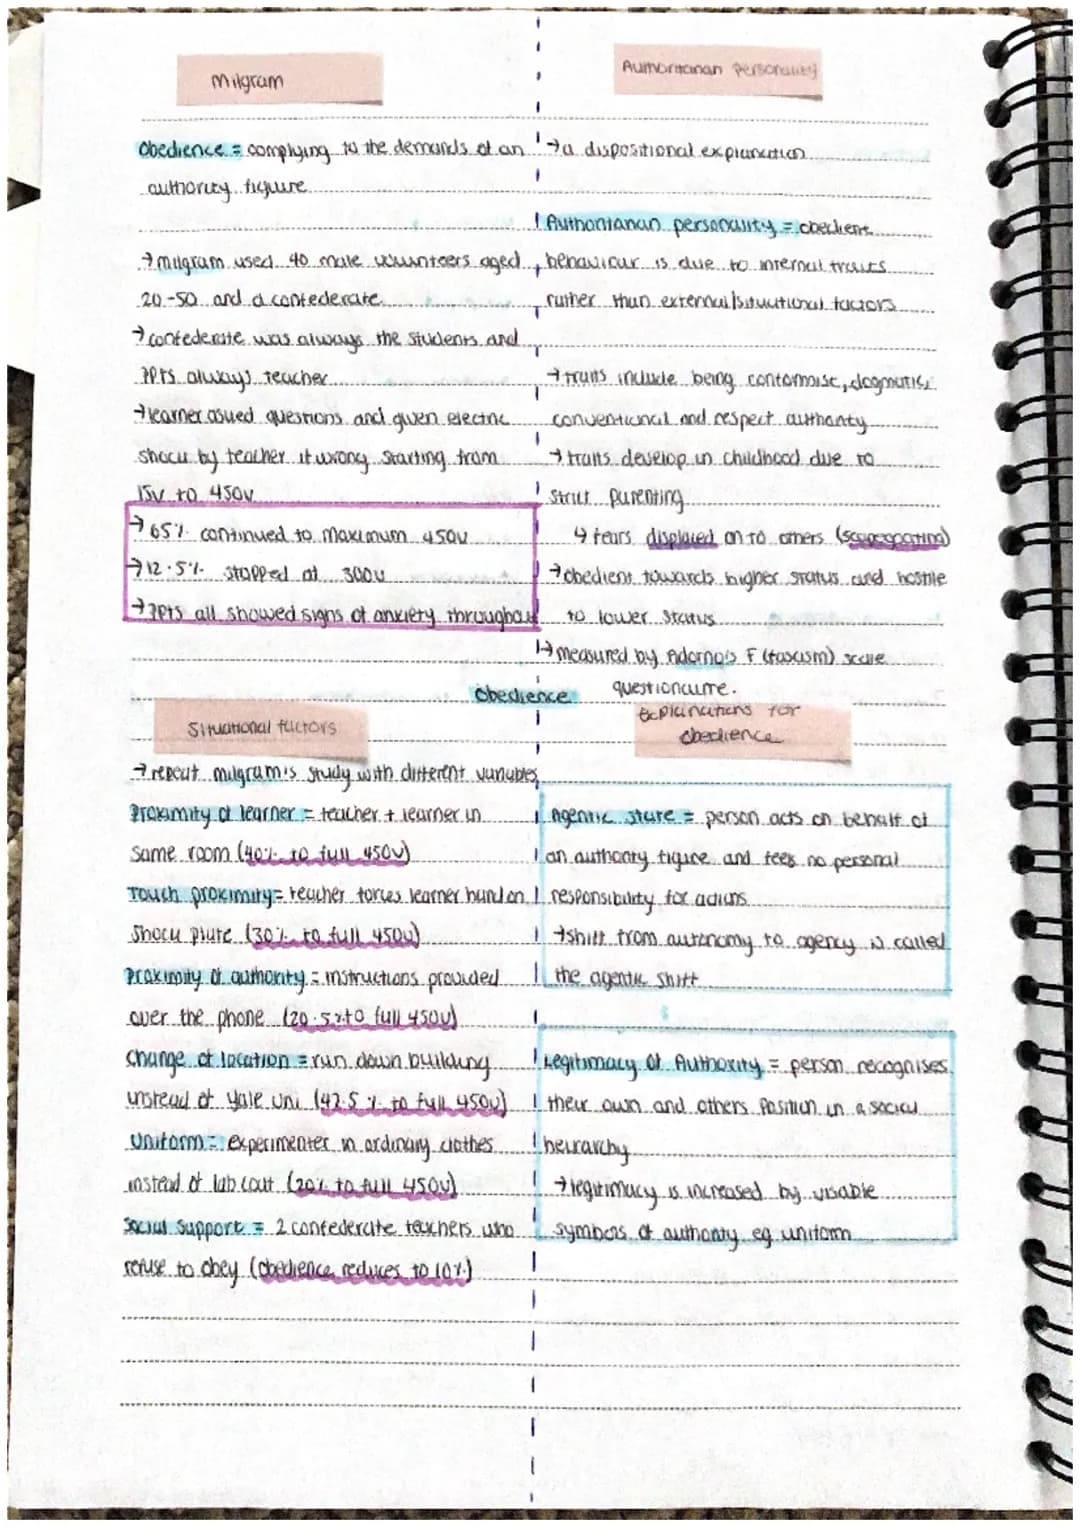 Milgram
Obedience = complying to the demands of an
authority figure.
→ milgram used 40 male volunteers aged
20-50 and a confederate.
→ confederate was always the students and
PPTs always teacher.
→ learner asked questions and given electric
shock by teacher if wrong starting from
15v to 450v
→ 65% continued to maximum 450v
→ 12.5% stopped at 300v
→ PPTs all showed signs of anxiety throughout
Authoritarian personality
→ a dispositional explanation
Authoritarian personality = obedient
behaviour is due to internal traits
rather than external/situational factors
→ traits include being conformist, dogmatic,
conventional and respect authority
→ traits develop in childhood due to
strict parenting
↳ fears displaced on to others (scapegoating)
→ obedient towards higher status and hostile
to lower status
→ measured by Adorno's F (fascism) scale
questionairre.
Obedience
Situational factors
→ repeat milgram's study with different variables
Proximity of learner = teacher + learner in
same room (40% to full 450v)
Touch proximity = teacher forces learner hand on
shock plate (30% to full 450v)
Proximity of authority = instructions provided
over the phone (20.5% to full 450v)
Change of location = run down building
instead of yale uni (47.5% to full 450v)
Uniform = experimenter in ordinary clothes
instead of lab coat (20% to full 450v)
Social Support = 2 confederate teachers who
refuse to obey (obedience reduces to 10%)
Explanations for
obedience
Agentic state = person acts on behalf of
an authority figure and feels no personal
responsibility for actions
→ shift from autonomy to agency is called
the agentic shift
Legitimacy Of Authority = person recognises
their own and others position in a social
heirarchy
→ legitimacy is increased by visable
symbols of authority eg uniform